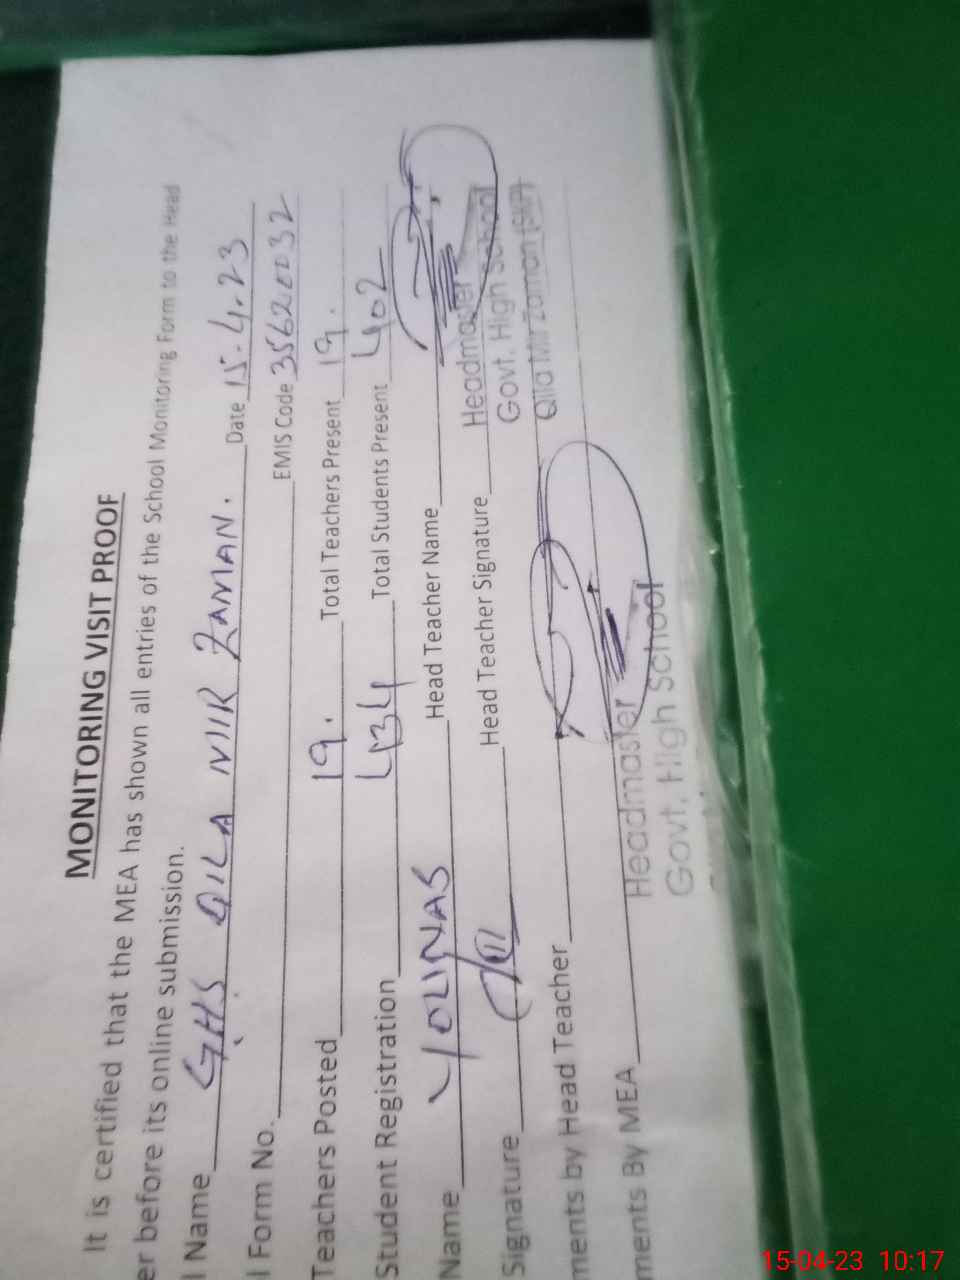 MONITORING VISIT PROOF
It is certified that the MEA has shown all entries of the School Monitoring Form to the Head
er before its online submission.
l Name GHS QILA MIR ZAMAN. Date 15.4.23
l Form No. EMIS Code 35620032
Teachers Posted 19. Total Teachers Present 19.
Student Registration 434 Total Students Present 402
Name YOUNAS Head Teacher Name
Signature Head Teacher Signature Headmaster
Govt. High School
ments by Head Teacher Qila Mir Zaman
ments By MEA Headmaster
Govt. High School
15-04-23 10:17